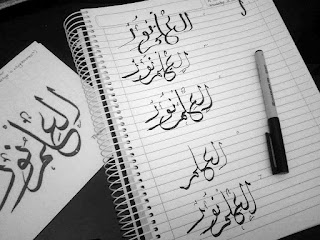 العلم نور
العلم نور
العلم نور
العلم
العلم نور
العلم نور